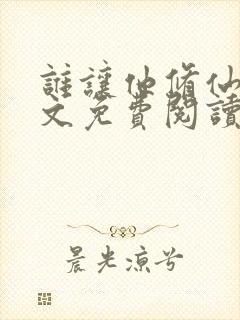 誰讓他修仙
文免費閱讀
晨光涼兮